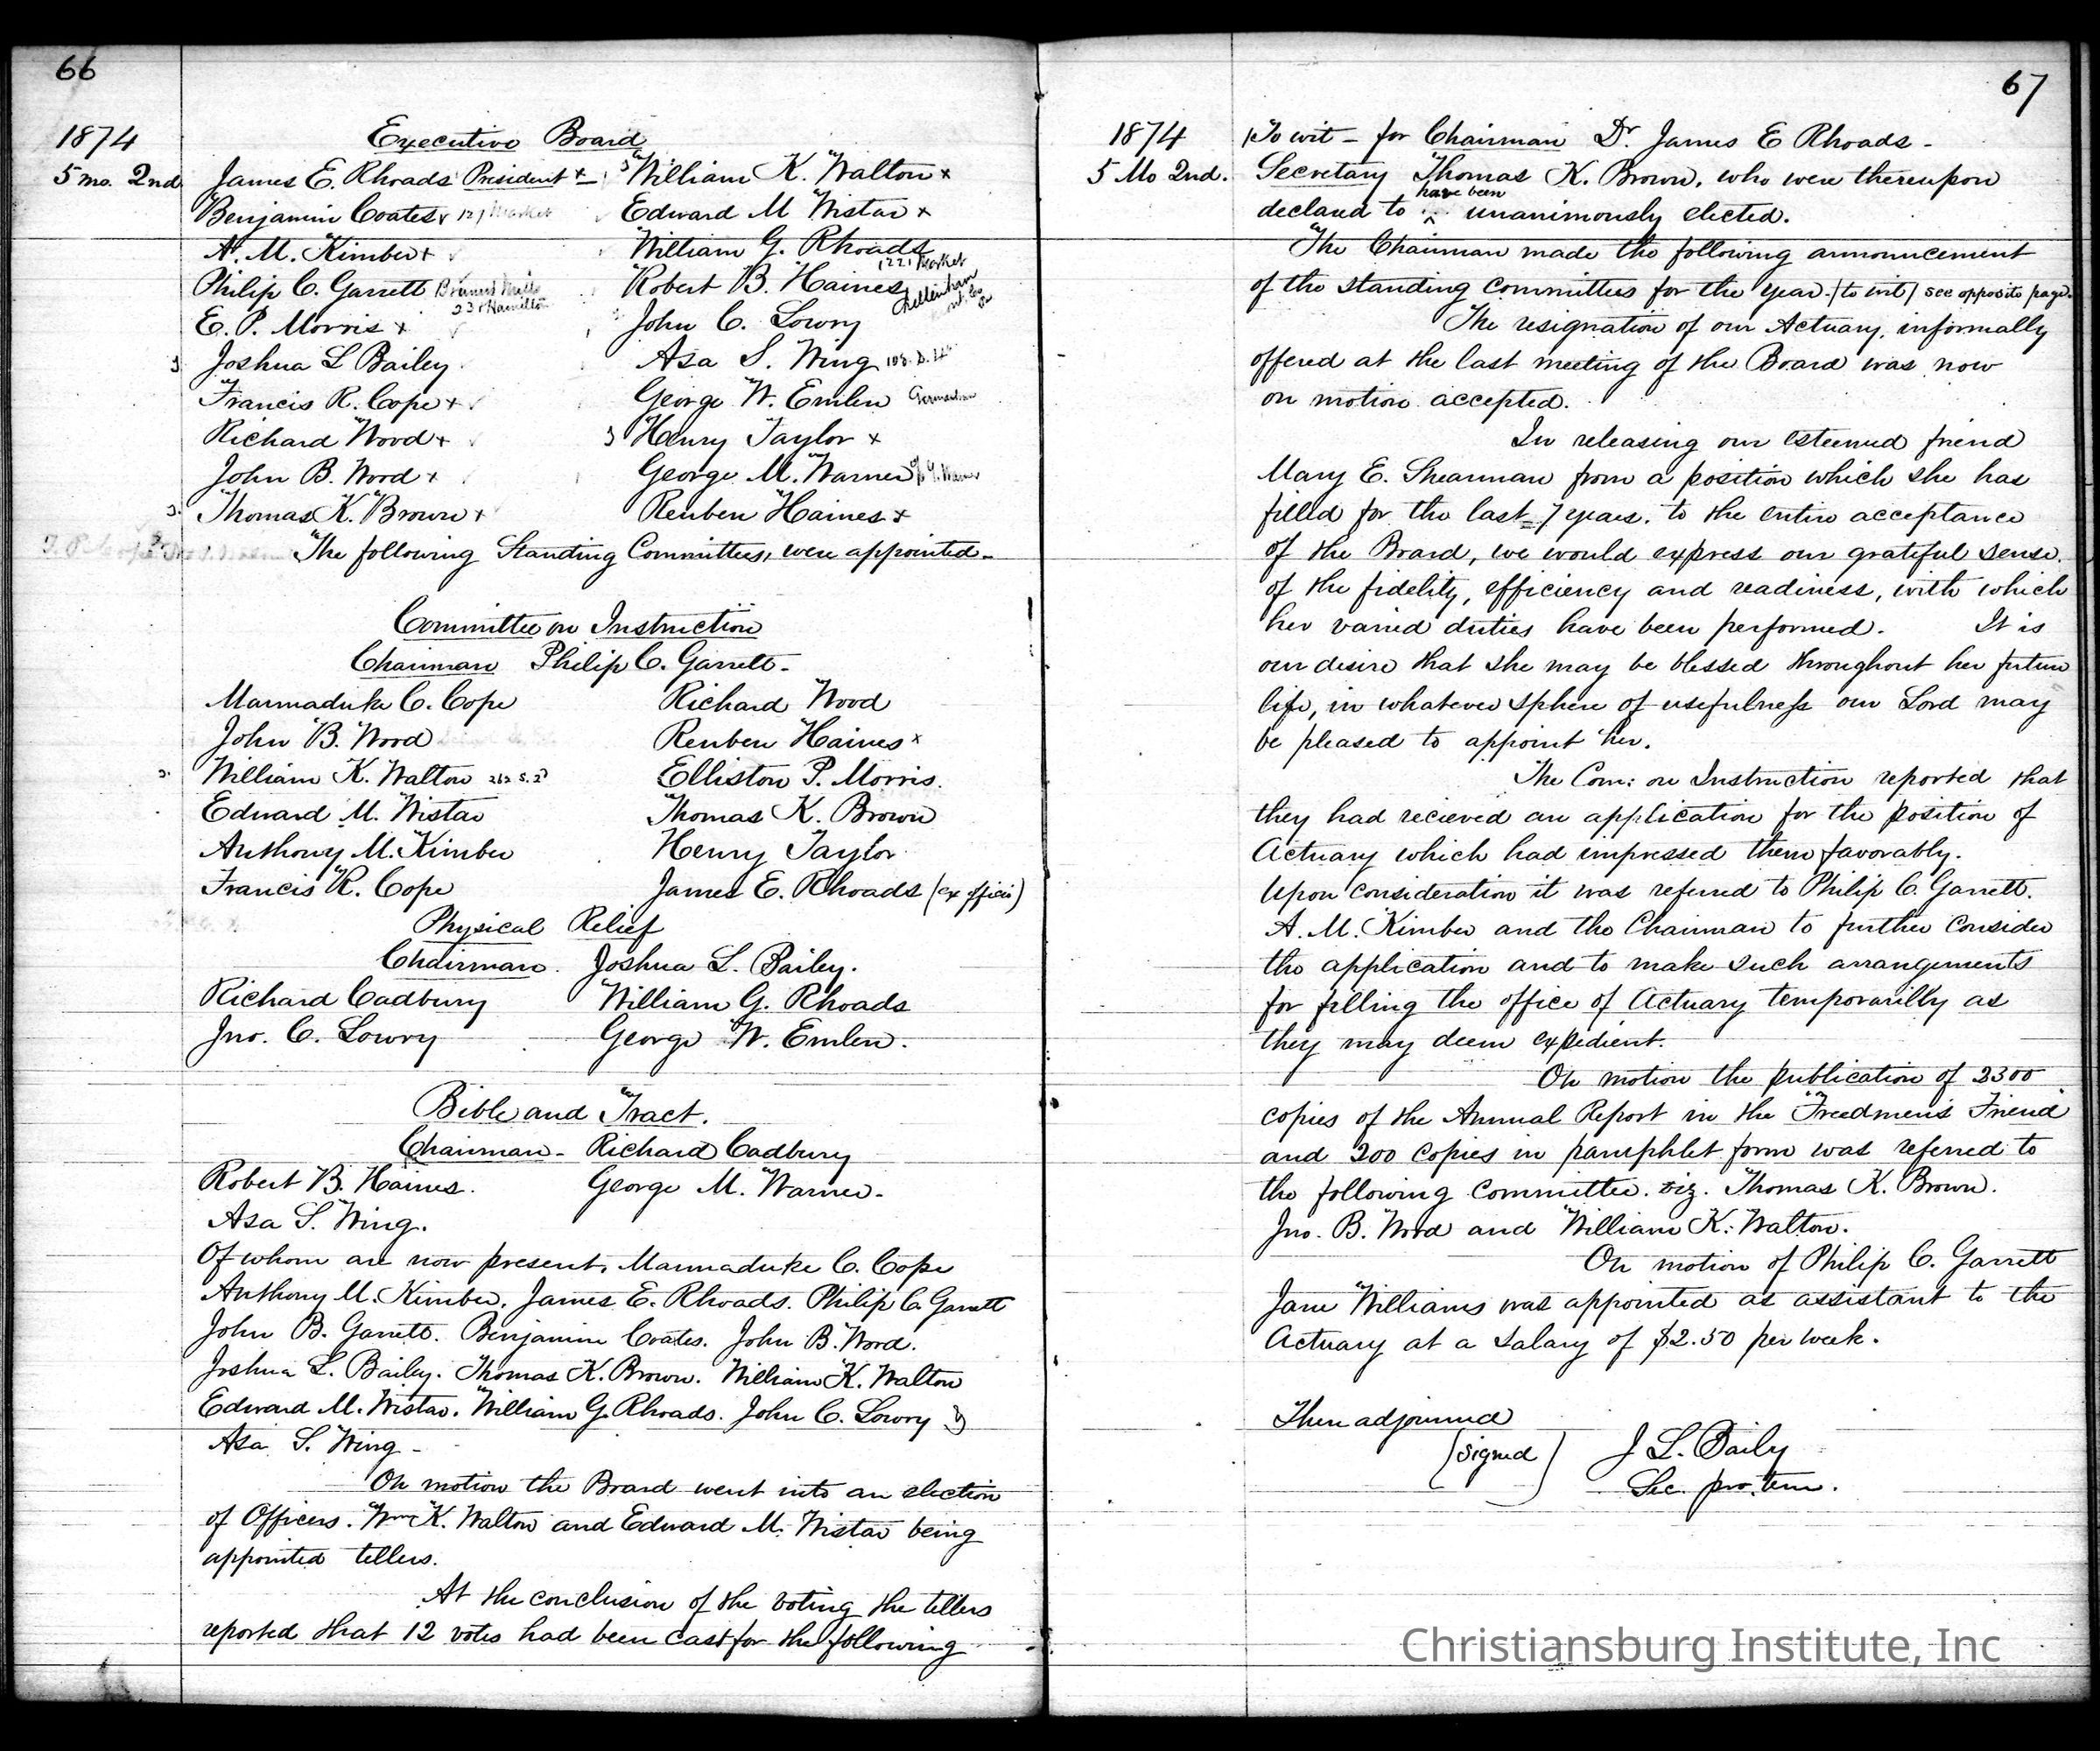 66
1874
5 mo. 2nd
Executive Board
James E. Rhoads President x William K. Walton x
Benjamin Coates x 127 Market Edward M Wistar x
A. M. Kimber x William G. Rhoads
1221 Market
Philip C. Garrett Robert B. Haines
E. P. Morris x John C. Lowry
Joshua L Bailey Asa S. Wing
Francis R. Cope x George W. Emlen
Richard Wood x Henry Taylor x
John B. Wood x George M. Warner
Thomas K. Brown x Reuben Haines x
The following Standing Committees, were appointed—
Committee on Instruction
Chairman Philip C. Garrett-
Marmaduke C. Cope Richard Wood
John B. Wood Reuben Haines x
William K. Walton Elliston P. Morris.
Edward M. Wistar Thomas K. Brown
Anthony M. Kimber Henry Taylor
Francis R. Cope James E. Rhoads (ex officio)
Physical Relief
Chairman. Joshua L. Bailey.
Richard Cadbury William G. Rhoads
Jno. C. Lowry George W. Emlen.
Bible and Tract.
Chairman- Richard Cadbury
Robert B. Haines. George M. Warner-
Asa S. Wing.
Of whom are now present, Marmaduke C. Cope
Anthony M. Kimber. James E. Rhoads. Philip C. Garrett
John B. Garrett. Benjamin Coates. John B. Wood.
Joshua L. Bailey. Thomas K. Brown. William K. Walton
Edward M. Wistar. William G. Rhoads. John C. Lowry &
Asa S. Wing-
On motion the Board went into an election
of Officers. Wm K. Walton and Edward M. Wistar being
appointed tellers.
At the conclusion of the voting the tellers
reported that 12 votes had been cast for the following
67
1874
5 Mo 2nd.
To wit - for Chairman Dr James E Rhoads-
Secretary Thomas K. Brown, who were thereupon
have been
declared to ^ unanimously elected.
The Chairman made the following announcement
of the standing committees for the year. (to wit) see opposite page.
The resignation of our Actuary, informally
offered at the last meeting of the Board was now
on motion accepted.
In releasing our esteemed friend
Mary E. Shearman from a position which she has
filled for the last 7 years, to the entire acceptance
of the Board, we would express our grateful sense
of the fidelity, efficiency and readiness, with which
her varied duties have been performed. It is
our desire that she may be blessed throughout her future
life, in whatever sphere of usefulness our Lord may
be pleased to appoint her.
The Com: on Instruction reported that
they had recieved an application for the position of
Actuary which had impressed them favorably.
Upon consideration it was referred to Philip C. Garrett.
A. M. Kimber and the Chairman to further consider
the application and to make such arrangements
for filling the office of Actuary temporarilly as
they may deem expedient.
On motion the publication of 2300
copies of the Annual Report in the "Freedmen's Friend"
and 200 copies in pamphlet form was referred to
the following committee. viz. Thomas K. Brown.
Jno. B. Wood and William K. Walton.
On motion of Philip C. Garrett
Jane Williams was appointed as assistant to the
Actuary at a salary of $2.50 per week.
Then adjourned
(signed) J L. Baily
Sec. pro. tem.
Christiansburg Institute, Inc